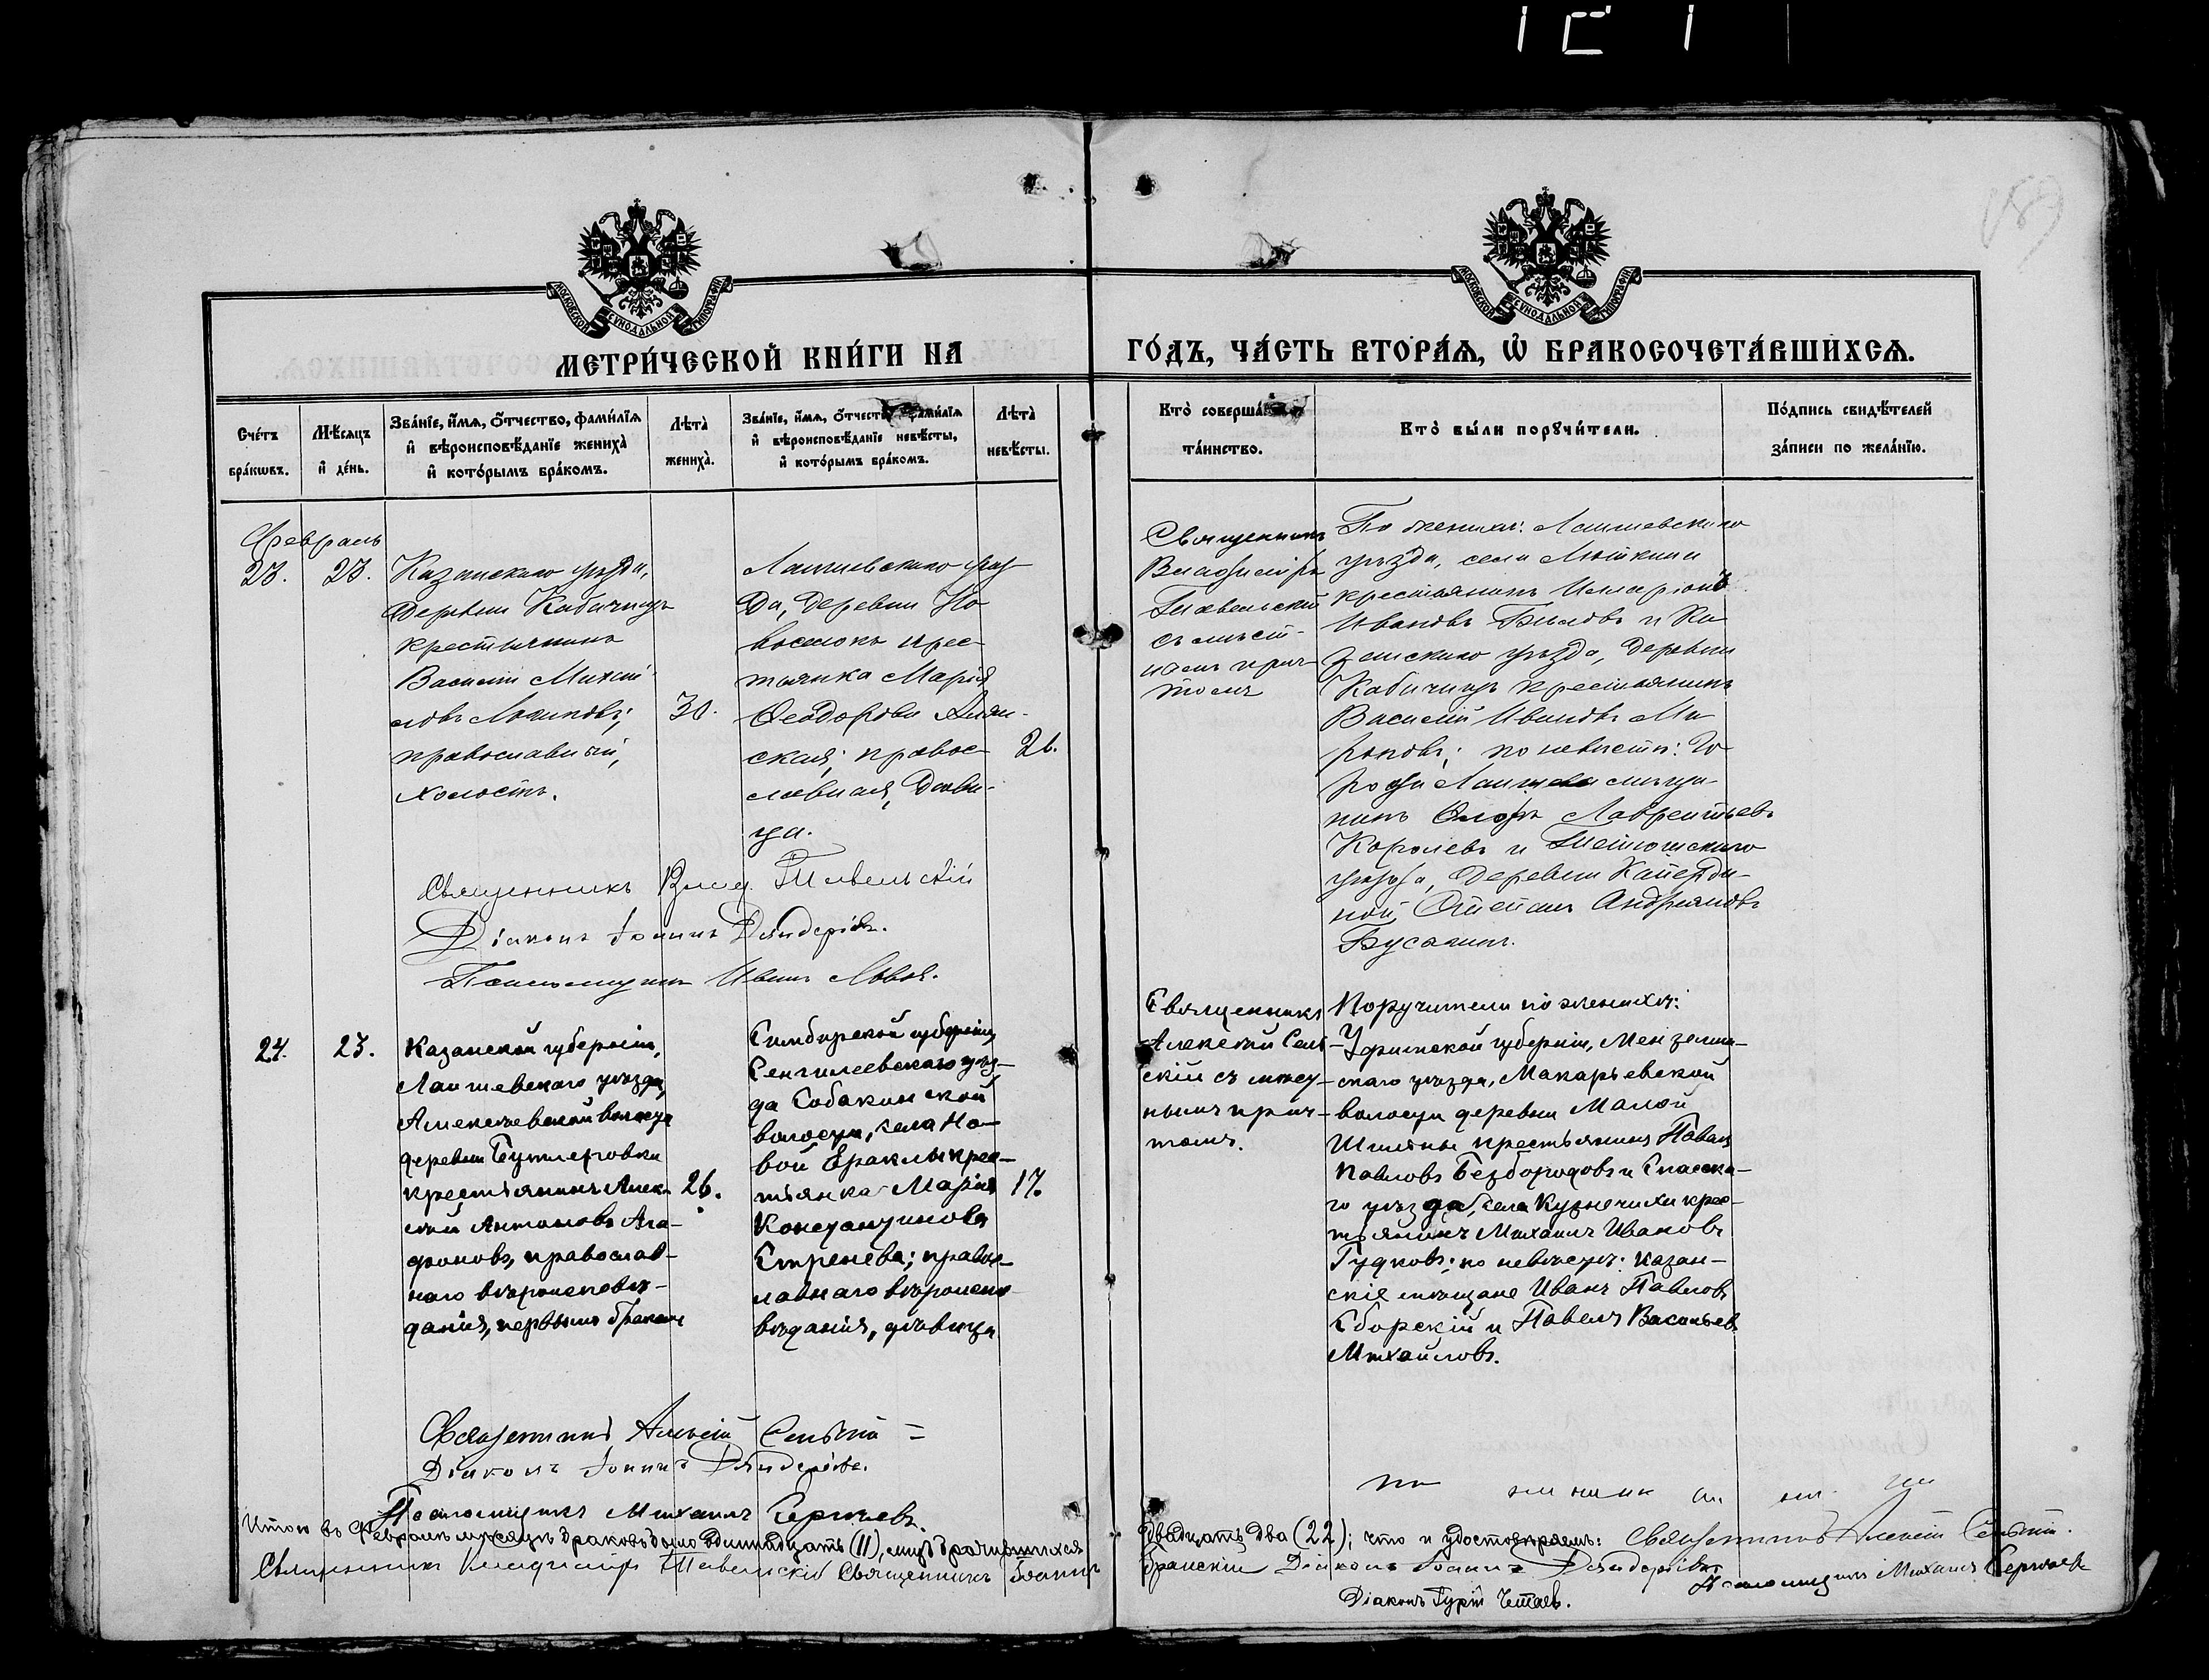 МЕТРИ́ЧЕСКОЙ КНИ́ГИ НА
ГО́ДЪ, ЧА́СТЬ ВТОРА́Я, Ѡ БРАКОСОЧЕТА́ВШИХСЯ.
Сче́тъ бра́кѡвъ.
Мѣ́сяцъ и де́нь.
Зва́нїе, и́мя, ѻ́тчество, фами́лїя
и вѣроисповѣ́данїе жениха̀
и кото́рымъ бра́комъ.
Лѣта̀ жениха̀.
Зва́нїе, и́мя, ѻ́тчество, фами́лїя
и вѣроисповѣ́данїе невѣ́сты,
и кото́рымъ бра́комъ.
Лѣта̀ невѣ́сты.
Кто̀ соверша́
та́инство.
Кто̀ бы́ли порꙋчи́тели.
По́дпись свидѣ́телей
за́писи по жела́нїю.
Февраль
23. 23.
Казанскаго уѣзда,
деревни Кабачищъ
крестьянинъ
Василій Михаи-
ловъ
православный,
холостъ.
30.
Лаишевскаго уѣз-
да, деревни Но-
воселокъ крес-
тьянка Марія
Ѳеодорова
ская; правос-
лавная, дѣви-
ца.
21.
Священникъ
Владиміръ
Тивельскій
съ мѣст-
нымъ прич-
томъ
По женихѣ: Лаишевскаго
уѣзда, села
крестьянинъ Иларіонъ
Ивановъ Бѣловъ и Ка-
занскаго уѣзда, деревни
Кабачищъ крестьянинъ
Василій Ивановъ Ми-
роновъ; по невѣстѣ: го-
рода Лаишева мѣща-
нинъ Лаврентьевъ
Королевъ и Тетюшскаго
уѣзда, деревни
Степанъ Андреяновъ
Священникъ Влад. Тивельскій
Діаконъ Іоаннъ
Псаломщикъ Иванъ Львовъ.
24. 23.
Казанской губерніи,
Лаишевскаго уѣзда,
Алексѣевской волости
деревни Бутлеровки
крестьянинъ Алек-
сѣй Антоновъ Ага-
фоновъ, православ-
наго вѣроисповѣ-
данія, первымъ бракомъ
26.
Симбирской губерніи,
Сенгилеевскаго уѣз-
да Собакинской
волости, села Но-
вой Ераклы крес-
тьянка Марія
Константинова
Стренева; правос-
лавнаго вѣроиспо-
вѣданія, дѣвица
17.
Священникъ
Алексѣй Сель-
скій съ мѣст-
нымъ прич-
томъ.
Поручители по женихѣ:
Уфимской губерніи, Мензелин-
скаго уѣзда, Макарьевской
волости деревни Малой
Шильны крестьянинъ Павелъ
Павловъ Безбородовъ и Спасска-
го уѣзда, села Кузнечихи крес-
тьянинъ Михаилъ Ивановъ
Гудковъ; по невѣстѣ: казан-
скіе мѣщане Иванъ Павловъ
Сборскій и Павелъ Васильевъ
Михайловъ.
Священникъ Алексѣй
Діаконъ Іоаннъ
Псаломщикъ Михаилъ Сергѣевъ.
Итого въ Февралѣ мѣсяцѣ браковъ было одиннадцать (11), лицъ брачившихся
двадцать два (22); что и удостовѣряемъ: Священникъ Алексѣй
Священникъ Владиміръ Тивельскій Священникъ Іоаннъ
Діаконъ Іоаннъ
Псаломщикъ Михаилъ Сергѣевъ
Діаконъ Гурій